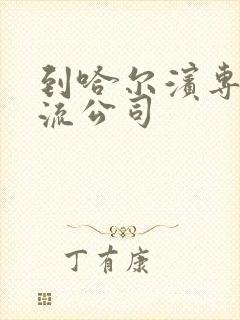 到哈尔滨专
流公司
丁有康